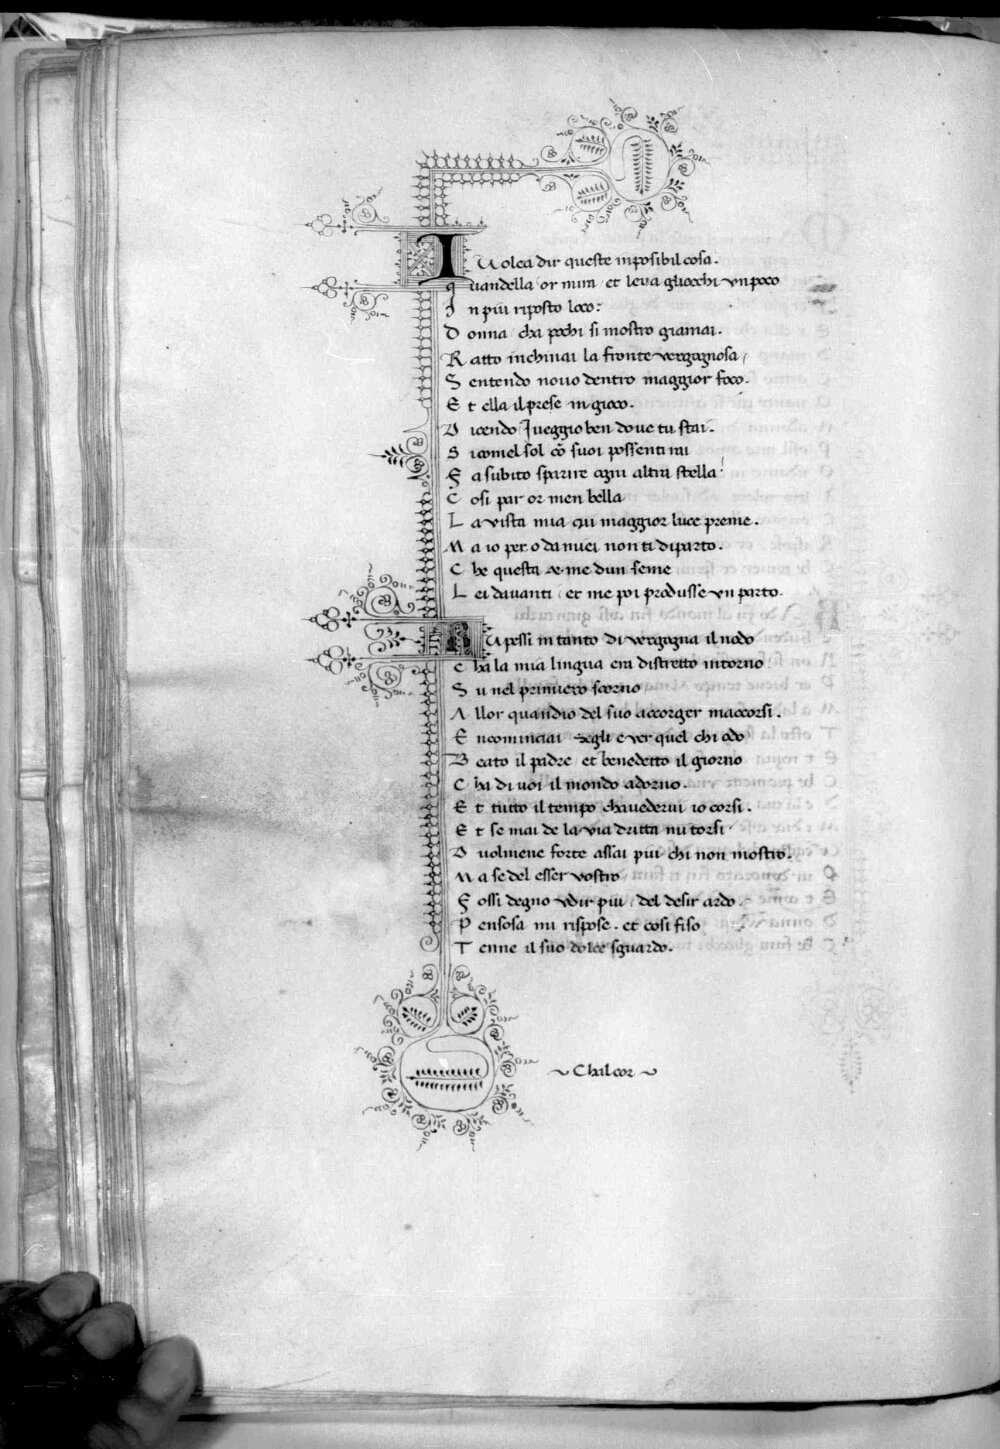 I Uolea dir queste inposibil cosa.
q uandella or mira et leva gliocchi vn poco
I n piu riposto loco:
D onna cha pochi si mostro giamai.
R atto inchinai la fronte vergognosa
S entendo nouo dentro maggior foco.
E t ella il prese in gioco.
D icendo I ueggio ben doue tu stai.
S icomel sol cõ suoi possenti rai
F a subito sparire ogni altra stella:
C osi par or men bella
L a vista mia cui maggior luce preme.
M a io pero da miei non ti diparto.
C he questa et me dun seme
L ei davanti et me poi produsse vn parto.
R Uppessi in tanto di vergogna il nodo
C ha la mia lingua era distretto intorno
S u nel primiero scorno
A llor quandio del suo accorger maccorsi.
E ncominciai segli e ver quel chi odo
B eato il padre et benedetto il giorno
C ha di uoi il mondo adorno.
E t tutto il tempo chavedervi io corsi.
E t se mai de la via dritta mi torsi
D uolmene forte assai piu chi non mostro.
M a se del esser vostro
F ossi degno vdir piu del desir ardo.
P ensosa mi rispose. et cosi fiso
T enne il suo dolce sguardo.
Chal cor